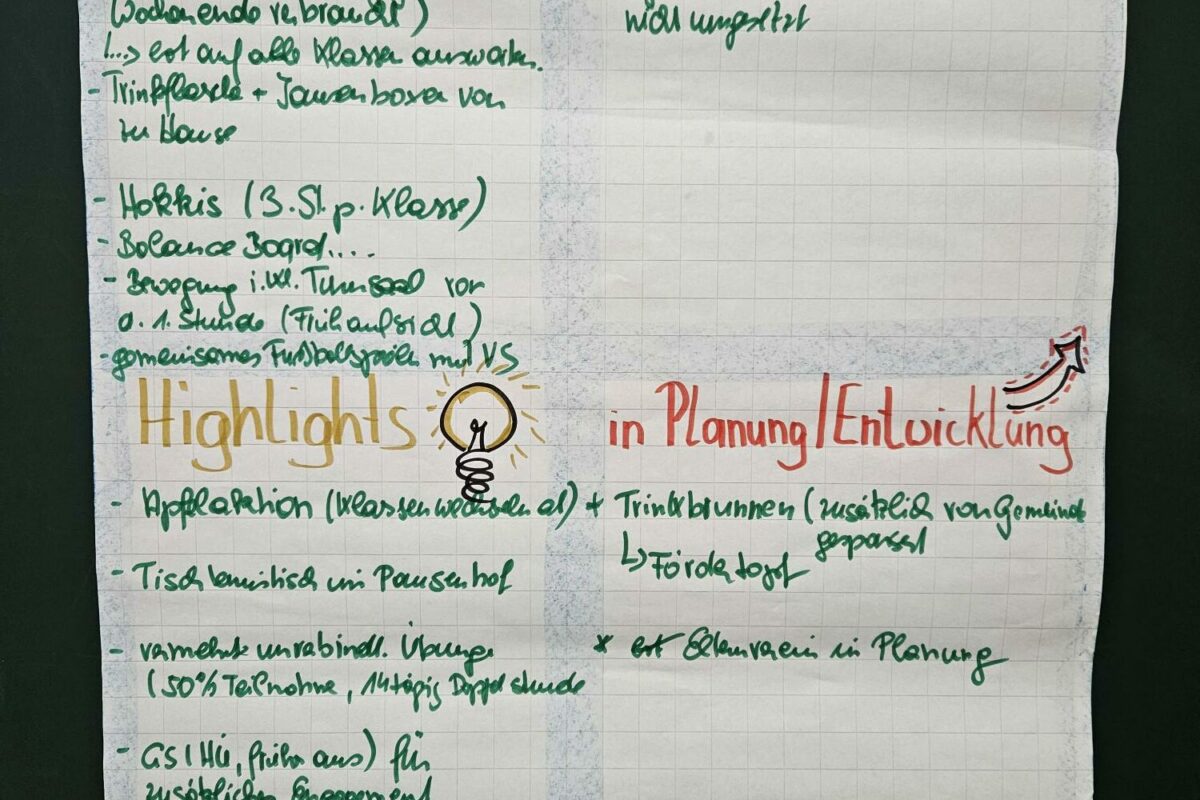 Wochenende verbraucht)
nicht umgesetzt
↳ evt auf alle Klassen ausweiten.
- Trinkflasche + Jausenboxen von
zu Hause
- Hokkis (3. St. p. Klasse)
- Balance Board....
- Bewegung i. Turnsaal vor
d. 1. Stunde (Frühaufsicht)
- gemeinsames Fußballspielen mit VS
Highlights
- Apfelaktion (Klassenwechselnd)
- Tischtennistisch im Pausenhof
- vermehrt unverbindl. Übunge
(50% Teilnahme, 14tägig Doppelstunde
- GS (HÜ, früher aus) für
zusätzliches Engagement
in Planung/Entwicklung
+ Trinkbrunnen (zusätzlich von Gemeinde
gesponsert
↳ Fördertopf
* evt Elternverein in Planung